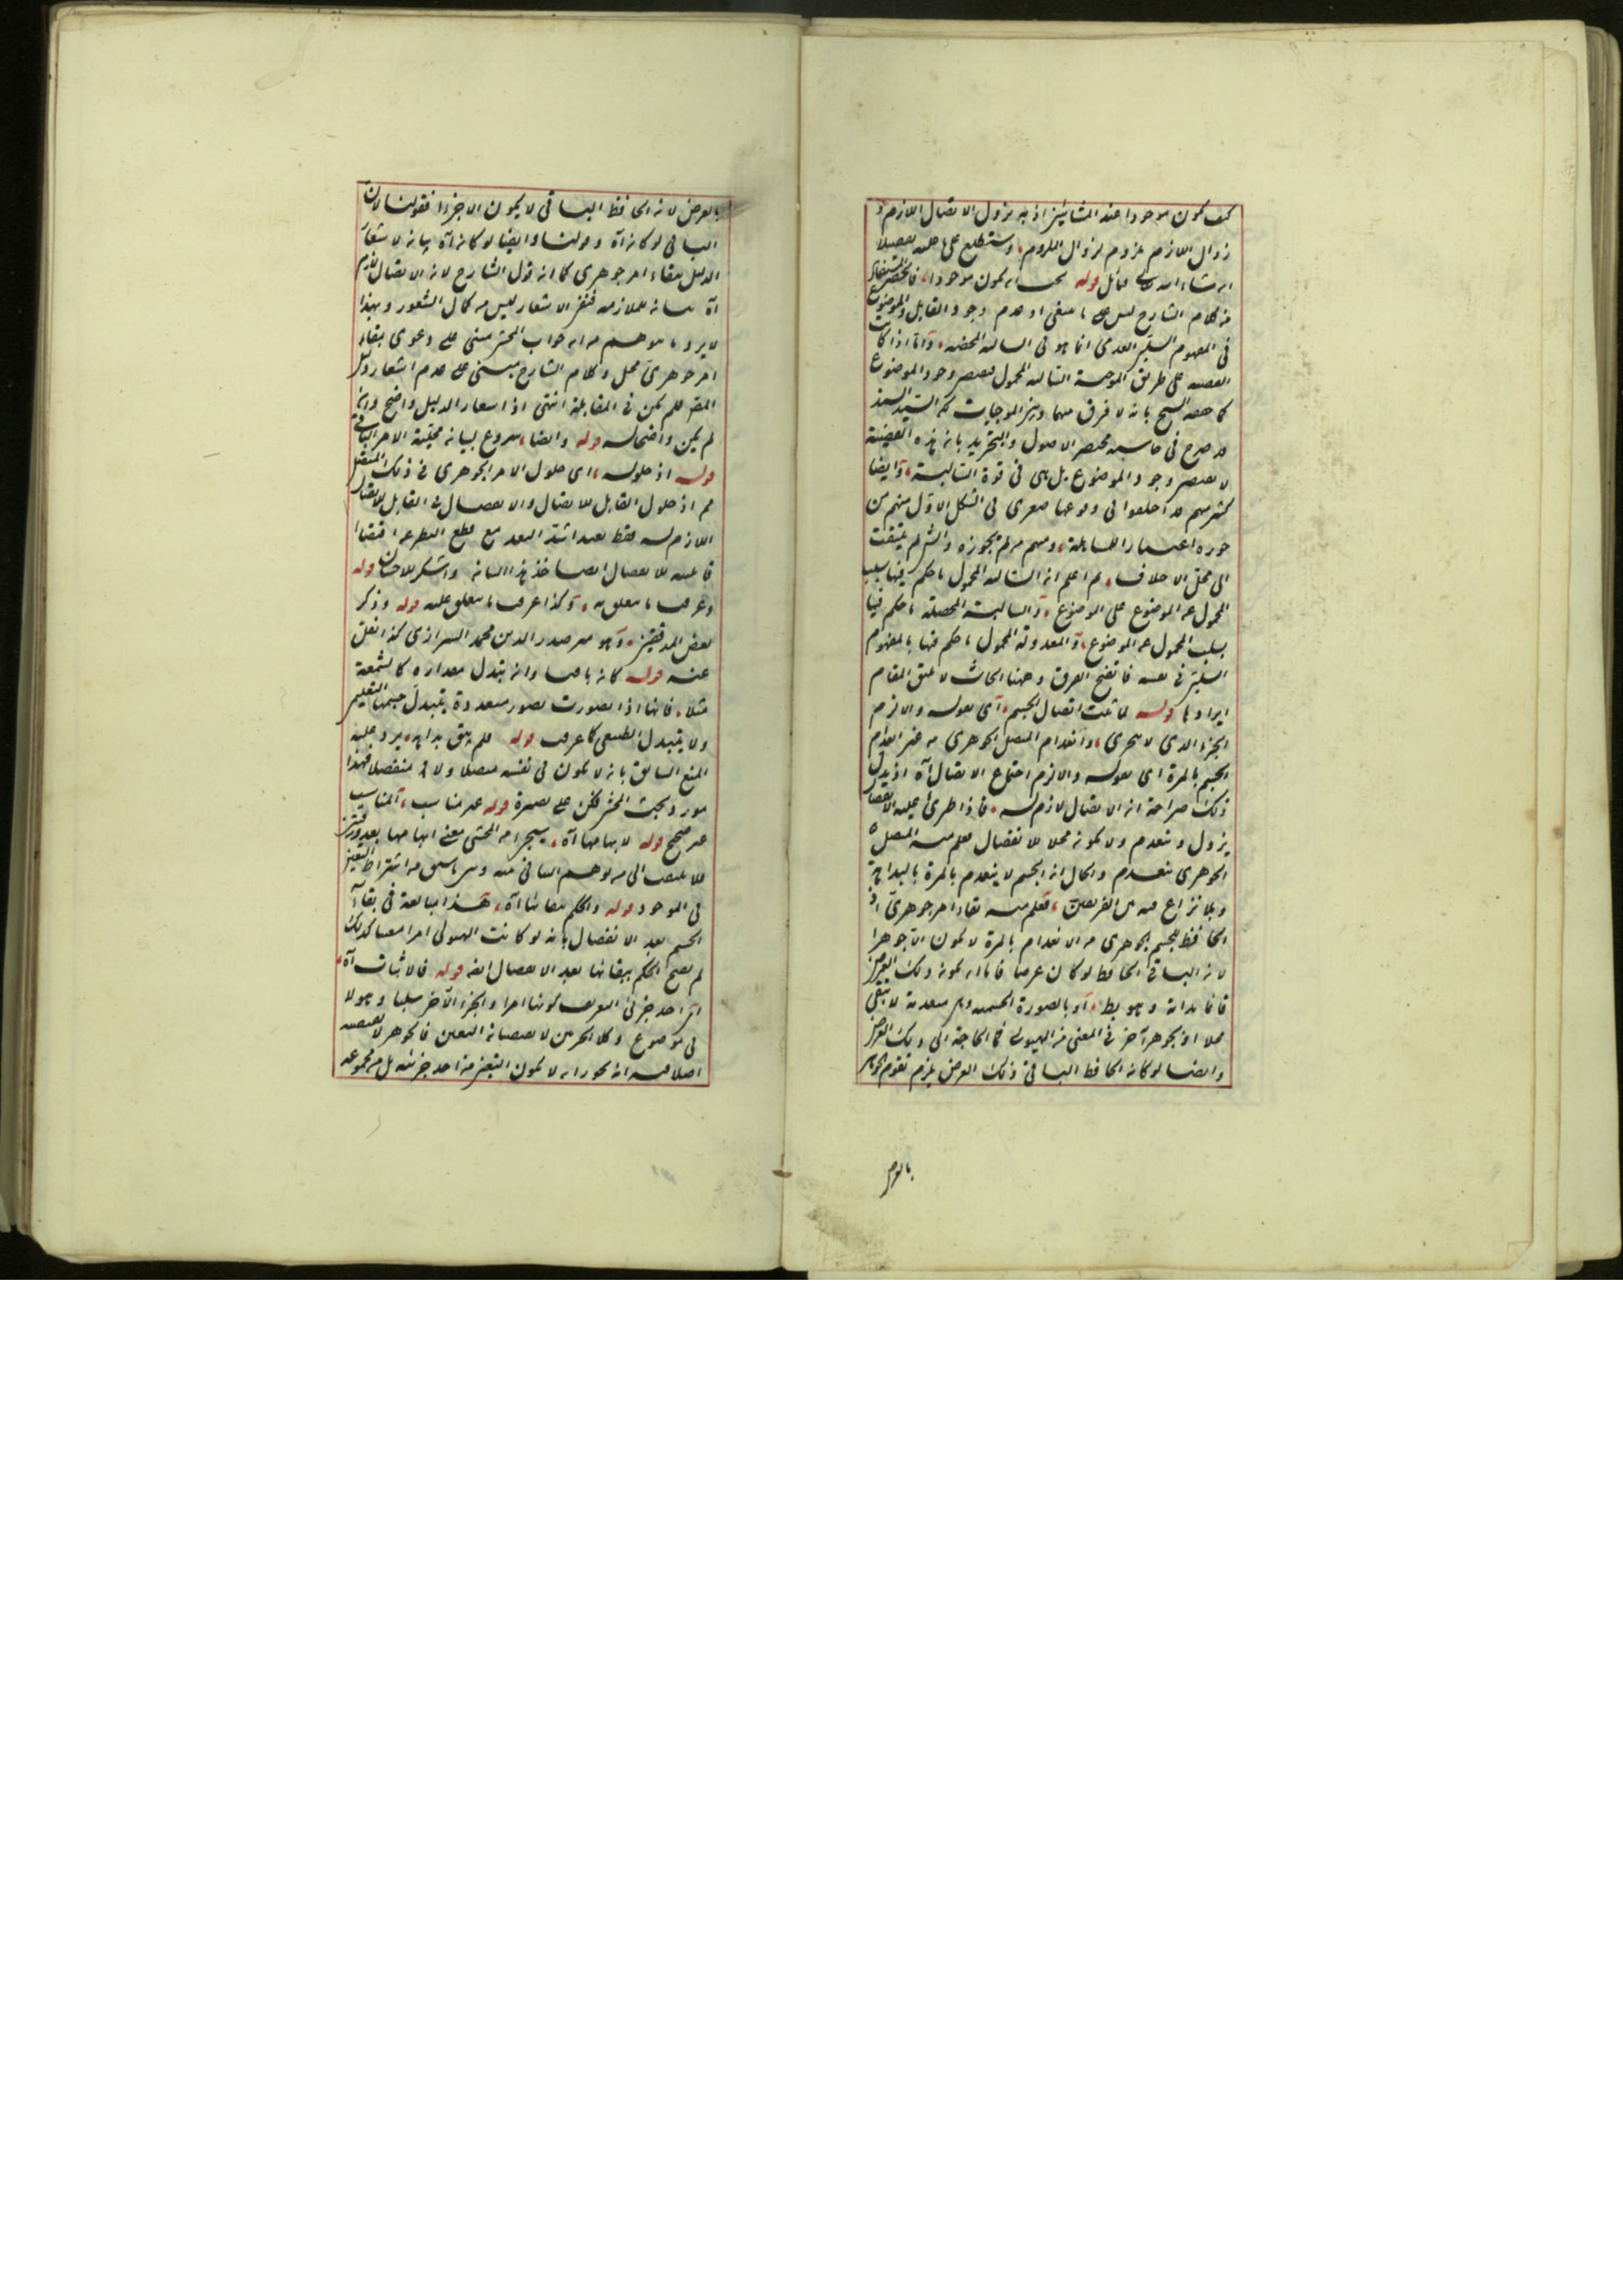 كيف يكون موجودا عند المشائين اذ به يزول الاتصال اللازم و
زوال اللازم ملزوم لزوال الملزوم وستطلع على تفصيله
ان شاء الله تعالى فتأمل قوله يجب ان يكون موجودا
من كلام الشارح ليس على ما ينبغي اذ عدم وجود القابل والموضوع
في المفهوم السلبي العدمي انما هو في السالبة المحضة واما اذا كانت
القضية على طريق الموجبة السالبة المحمول فيقتضي وجود الموضوع
كما حققه الشيخ بانه لا فرق بينها وبين الموجبات لكن السيد السند
قد صرح في حاشية مختصر الاصول والتجريد بان هذه القضية
لا يقتضي وجود الموضوع بل هي في قوة السالبة وايضا
كثير منهم قد اختلفوا في وقوعها صغرى في الشكل الاول منهم من
جوزه ومنهم من لم يجوزه
الى محل الاختلاف ثم اعلم ان السالبة المحمول ما حكم فيها بسلب
المحمول عن الموضوع على الموضوع والسالبة المحصلة ما حكم فيها
بسلب المحمول عن الموضوع والمعدولة المحمول ما حكم فيها بالمفهوم
السلبي في نفسه فاتضح الفرق وههنا ابحاث لا يليق المقام
ايرادها قوله لما ثبت اتصال الجسم اي بقوله والا لزم
الجزء الذي لا يتجزى وانعدام المتصل الجوهري من غير انعدام
الجسم بالمرة اي بقوله والا لزم اجتماع الاتصال آه اذ يدل
ذلك صراحة ان الاتصال لازم له فاذا طرئ عليه الانفصال
يزول وينعدم ولا يكون محلا للانفصال فعلم منه المتصل
الجوهري ينعدم والحال ان الجسم لا ينعدم بالمرة بالبداهة
وبلا نزاع فيه من الفريقين فعلم منه بقاء امر جوهري اذ
الحافظ للجسم الجوهري من الانعدام بالمرة لا يكون الا جوهرا
لان الباقي الحافظ لو كان عرضا فاما ان يكون ذلك العرض
قائما بذاته وهو بط او بالصورة الجسمية وهي منعدمة لا تبقى
محلا او بجوهر آخر في المعنى من الهيولى فما الحاجة الى ذلك العرض
وايضا لو كان الحافظ الباقي ذلك العرض يلزم تقوم الجوهر
بالعرض
بالعرض لان الحافظ الباقي لا يكون الا جزءا فقولنا لان
الباقي لو كان آه وقولنا وايضا لو كان آه بيان لاشعار
الدليل ببقاء امر جوهري كما ان قول الشارح لان الاتصال لازم
آه بيان للملازمة فنفي الاشعار ليس من كمال الشعور وبهذا
لا يرد ما يتوهم من ان جواب المحشي مبني على دعوى بقاء
امر جوهري محل وكلام الشارح مبني على عدم اشعار دليل
المقر فلم يكن في المقابلة انتهى اذ اشعار الدليل واضح وان
لم يكن واضحا له قوله وايضا شروع لبيان محلية الامر الباقي
قوله اذ حلوله اي حلول الامر الجوهري في ذلك المتصل
اذ حلول القابل للاتصال والانفصال في القابل للاتصال
اللازم له فقط بعيد اشد البعد مع قطع النظر عن اقتضاء
قابليته للانفصال ايضا خذ هذا البيان واشكر للاحسان قوله
وعرف ما يتعلق به وكذا عرف ما يتعلق عليه قوله وذكر
بعض المدققين وهو مير صدر الدين محمد الشيرازي كذا نقل
عنه قوله كان باقيا وان يتبدل مقداره كالشمعة
مثلا فانها اذا تصورت بصور متعددة يتبدل جسمها التعليمي
ولا يتبدل الطبيعي كما عرف قوله فلم يبق بذاته يرد عليه
المنع السابق بانه لا يكون في نفسه متصلا ولا منفصلا فهذا
مورد بحث المحشي فكن على بصيرة قوله غير مناسب المناسب
غير صحيح قوله لابهامها آه سيجئ من المحشي معنى ابهامها بعد ورقتين
فلا يلتفت الى من توهم التنافي بينه وبين ما سبق من اشتراط التعين
في الموجود قوله والحكم ببقائها آه هذا مبالغة في بقاء
الجسم بعد الانفصال بانه لو كانت الهيولى امرا معينا كذلك
لم يصح الحكم ببقائها بعد الانفصال ايضا قوله فالاثبات آه
اي احد جزئي التعريف كونها امرا والجزء الآخر سلبا وهو لا
في موضوع وكلا الجزئين لا يقتضيان التعين فالجوهر لا يقتضيه
اصلا فيه انه يجوز ان لا يكون التعين من احد جزئيه بل من مجموعه